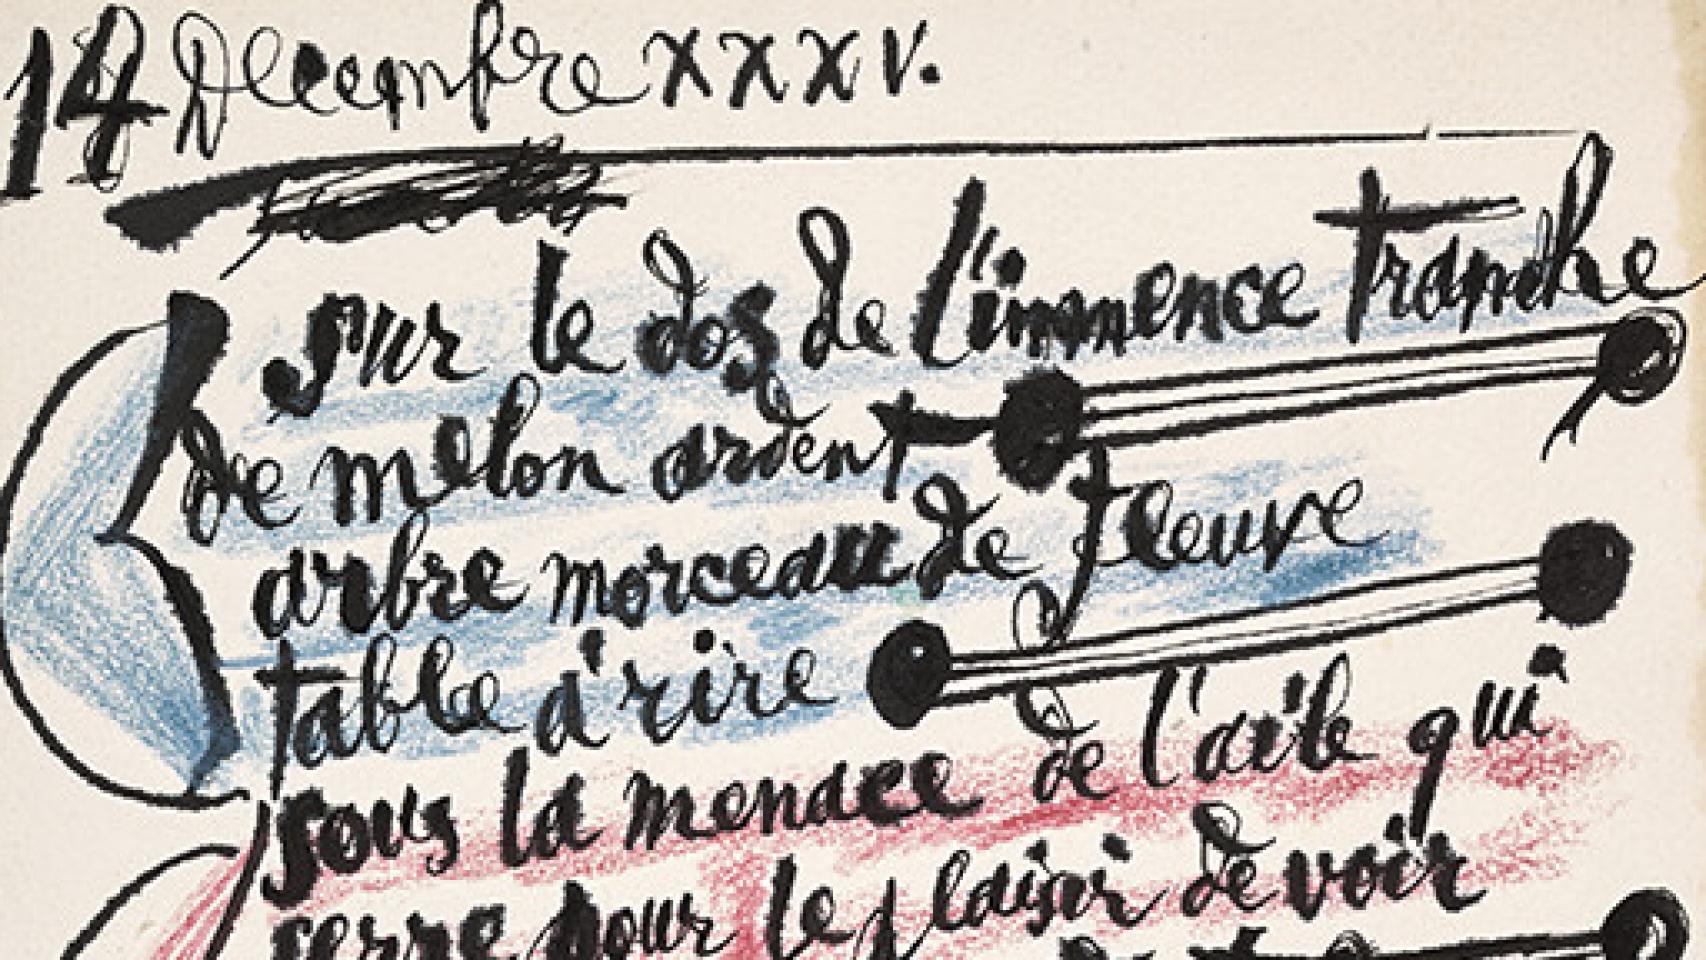 14 Decembre XXXV.
sur le dos de l'immence tranche
de melon ardent
arbre morceau de fleuve
table à rire
sous la menace de l'aile qui
serre pour le plaisir de voir